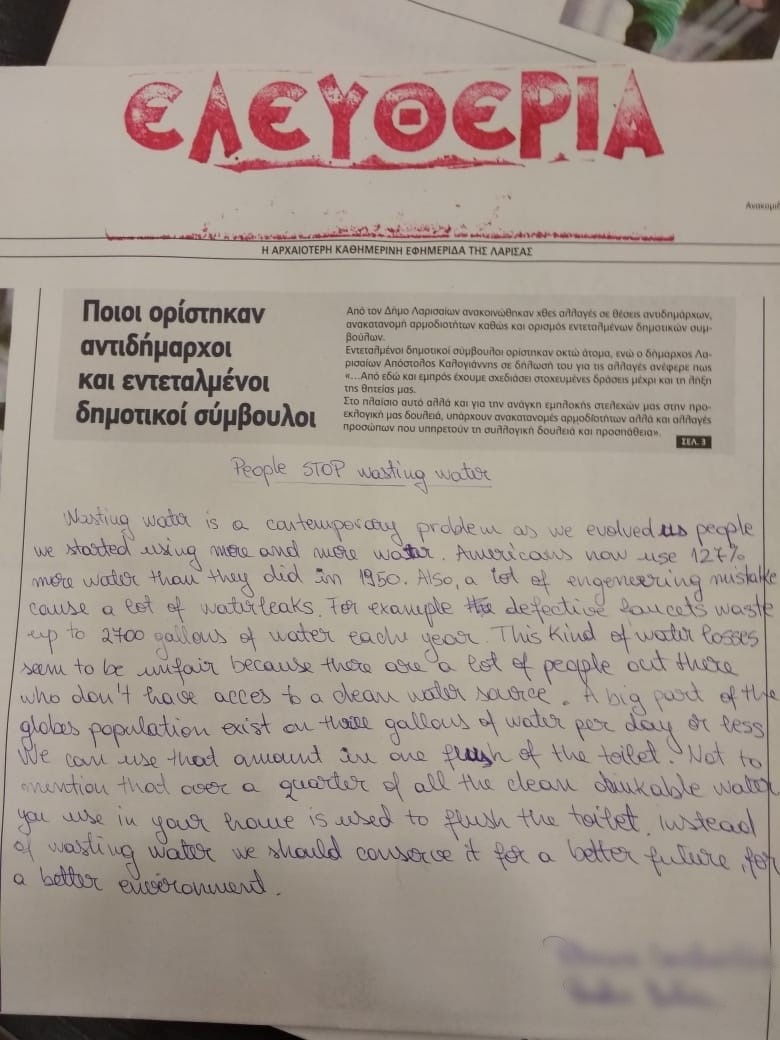 ΕΛΕΥΘΕΡΙΑ
Η ΑΡΧΑΙΟΤΕΡΗ ΚΑΘΗΜΕΡΙΝΗ ΕΦΗΜΕΡΙΔΑ ΤΗΣ ΛΑΡΙΣΑΣ
Ποιοι ορίστηκαν
αντιδήμαρχοι
και εντεταλμένοι
δημοτικοί σύμβουλοι
Από τον Δήμο Λαρισαίων ανακοινώθηκαν χθες αλλαγές σε θέσεις αντιδημάρχων,
ανακατανομή αρμοδιοτήτων καθώς και ορισμός εντεταλμένων δημοτικών συμ-
βούλων.
Εντεταλμένοι δημοτικοί σύμβουλοι ορίστηκαν οκτώ άτομα, ενώ ο δήμαρχος Λα-
ρισαίων Απόστολος Καλογιάννης σε δήλωσή του για τις αλλαγές ανέφερε πως
«...Από εδώ και εμπρός έχουμε σχεδιάσει στοχευμένες δράσεις μέχρι και τη λήξη
της θητείας μας.
Στο πλαίσιο αυτό αλλά και για την ανάγκη εμπλοκής στελεχών μας στην προ-
εκλογική μας δουλειά, υπάρχουν ανακατανομές αρμοδιοτήτων αλλά και αλλαγές
προσώπων που υπηρετούν τη συλλογική δουλειά και προσπάθεια».
ΣΕΛ. 3
People STOP wasting water
Wasting water is a contemporary problem as we evolved us people
we started using more and more water. Americans now use 127%
more water than they did in 1950. Also, a lot of engeneering mistake
cause a lot of waterleaks. For example defective faucets waste
up to 2700 gallons of water each year. This kind of water losses
seem to be unfair because there are a lot of people out there
who don't have acces to a clean water source. A big part of the
globes population exist on three gallons of water per day or less
We can use that amount in one flush of the toilet. Not to
mention that over a quarter of all the clean drinkable water
you use in your home is used to flush the toilet. Instead
of wasting water we should conserve it for a better future, for
a better environment.